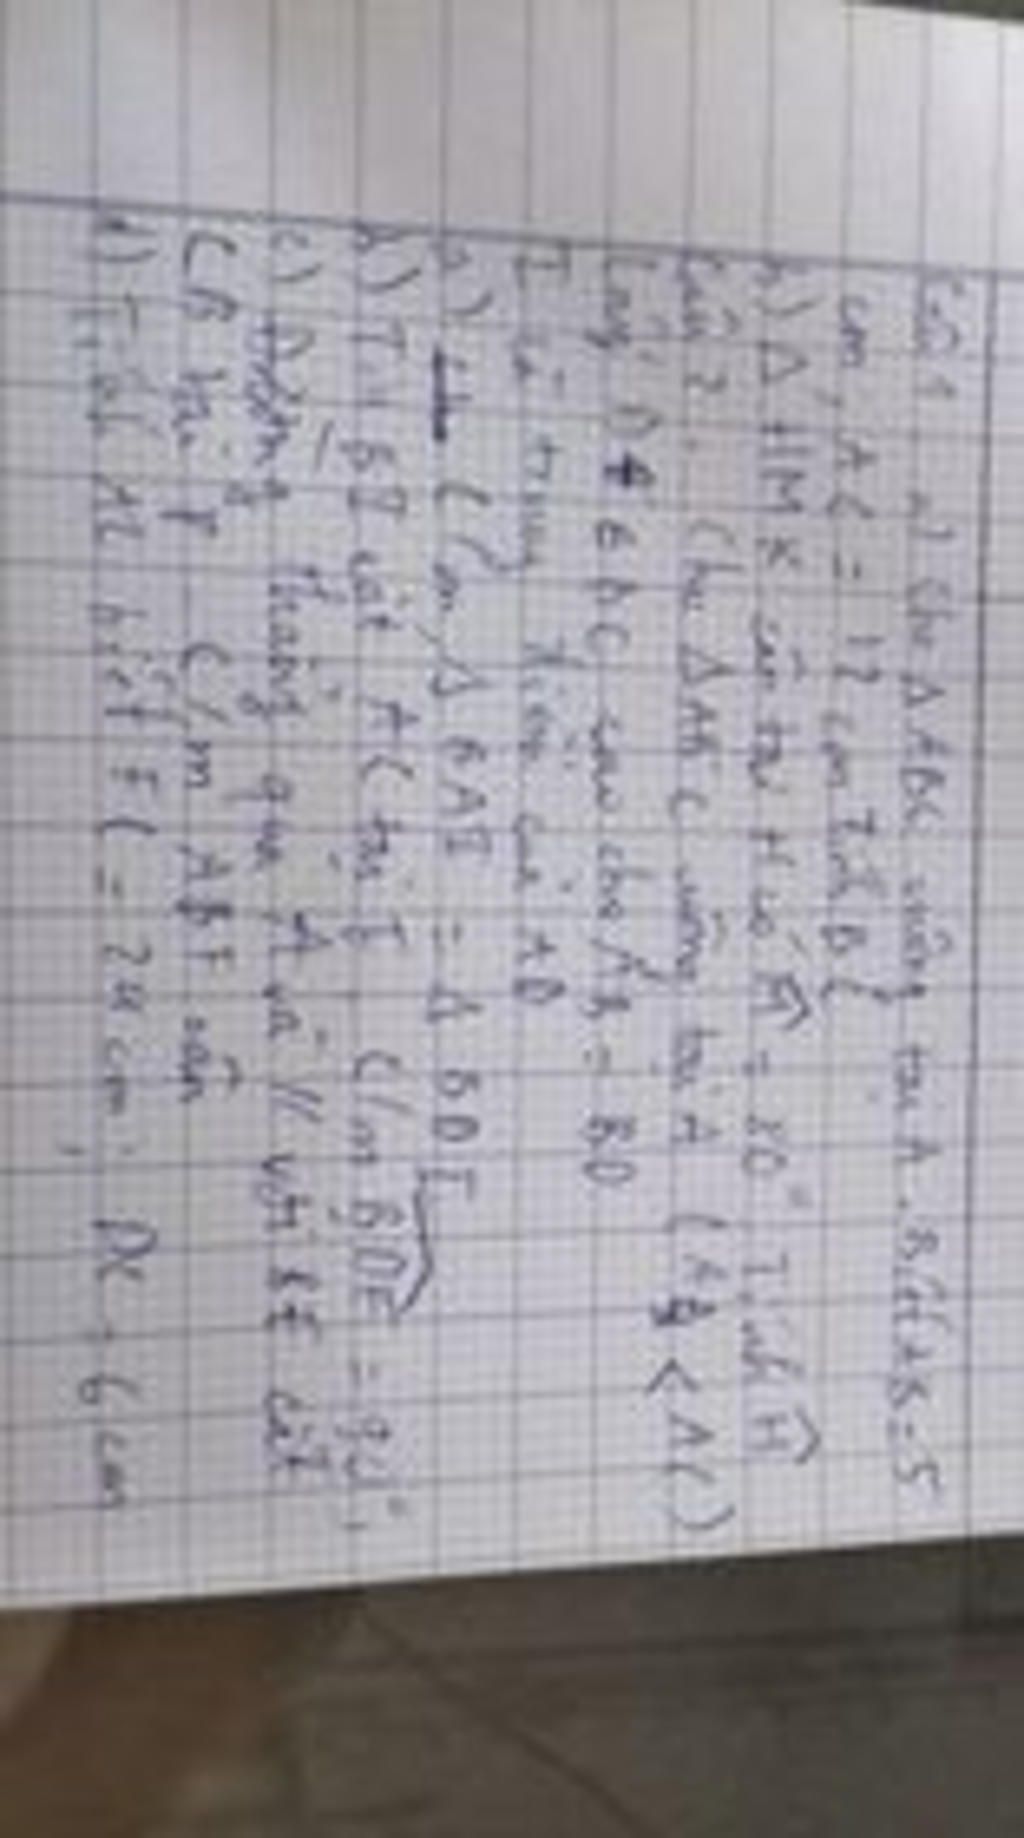 Câu 1 a) Cho Δ ABC vuông tại A. Biết AB = 5
cm, AC = 12 cm Tính BC
b) Δ HMK cân tại H có M̂ = 80° Tính Ĥ
Câu 2. Cho ΔABC vuông tại A (AB < AC)
Lấy D ∈ BC sao cho AB = BD
I là trung điểm của AD
a) C/m Δ BAI = Δ BDI
b) Tia BI cắt AC tại E C/m BDE = 90°.
c) Đường thẳng qua A và // với BE cắt
CB tại F C/m ABF cân
d) Tính AC biết FC = 24cm; DC = 6cm